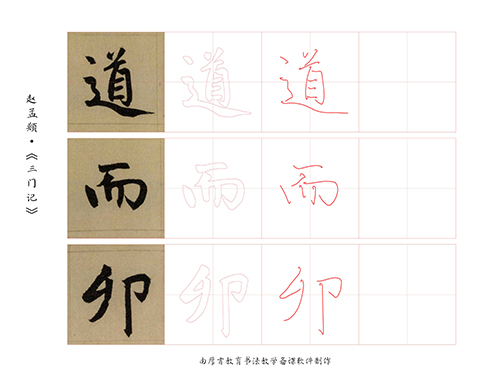 赵孟頫·《三门记》
道 道 道
而 而 而
卯 卯 卯
教育书法教学备课软件制作